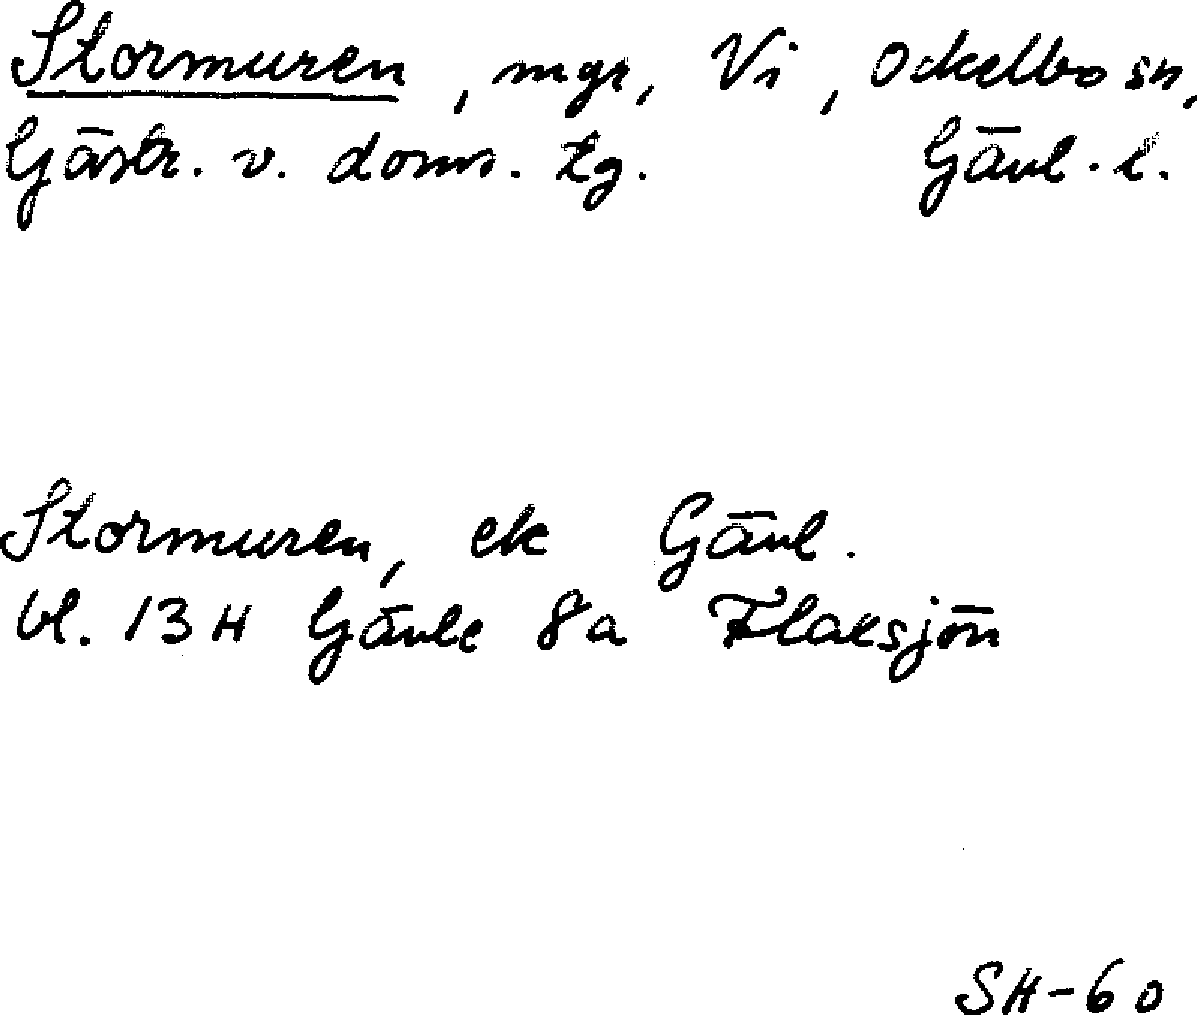 Stormuren, mgr, Vi, Ockelbo sn,
Gästr. v. doms. tg. Gävl. l.
Stormuren, ek Gävl.
bl. 13 H Gävle 8a Flaksjön
SH-60